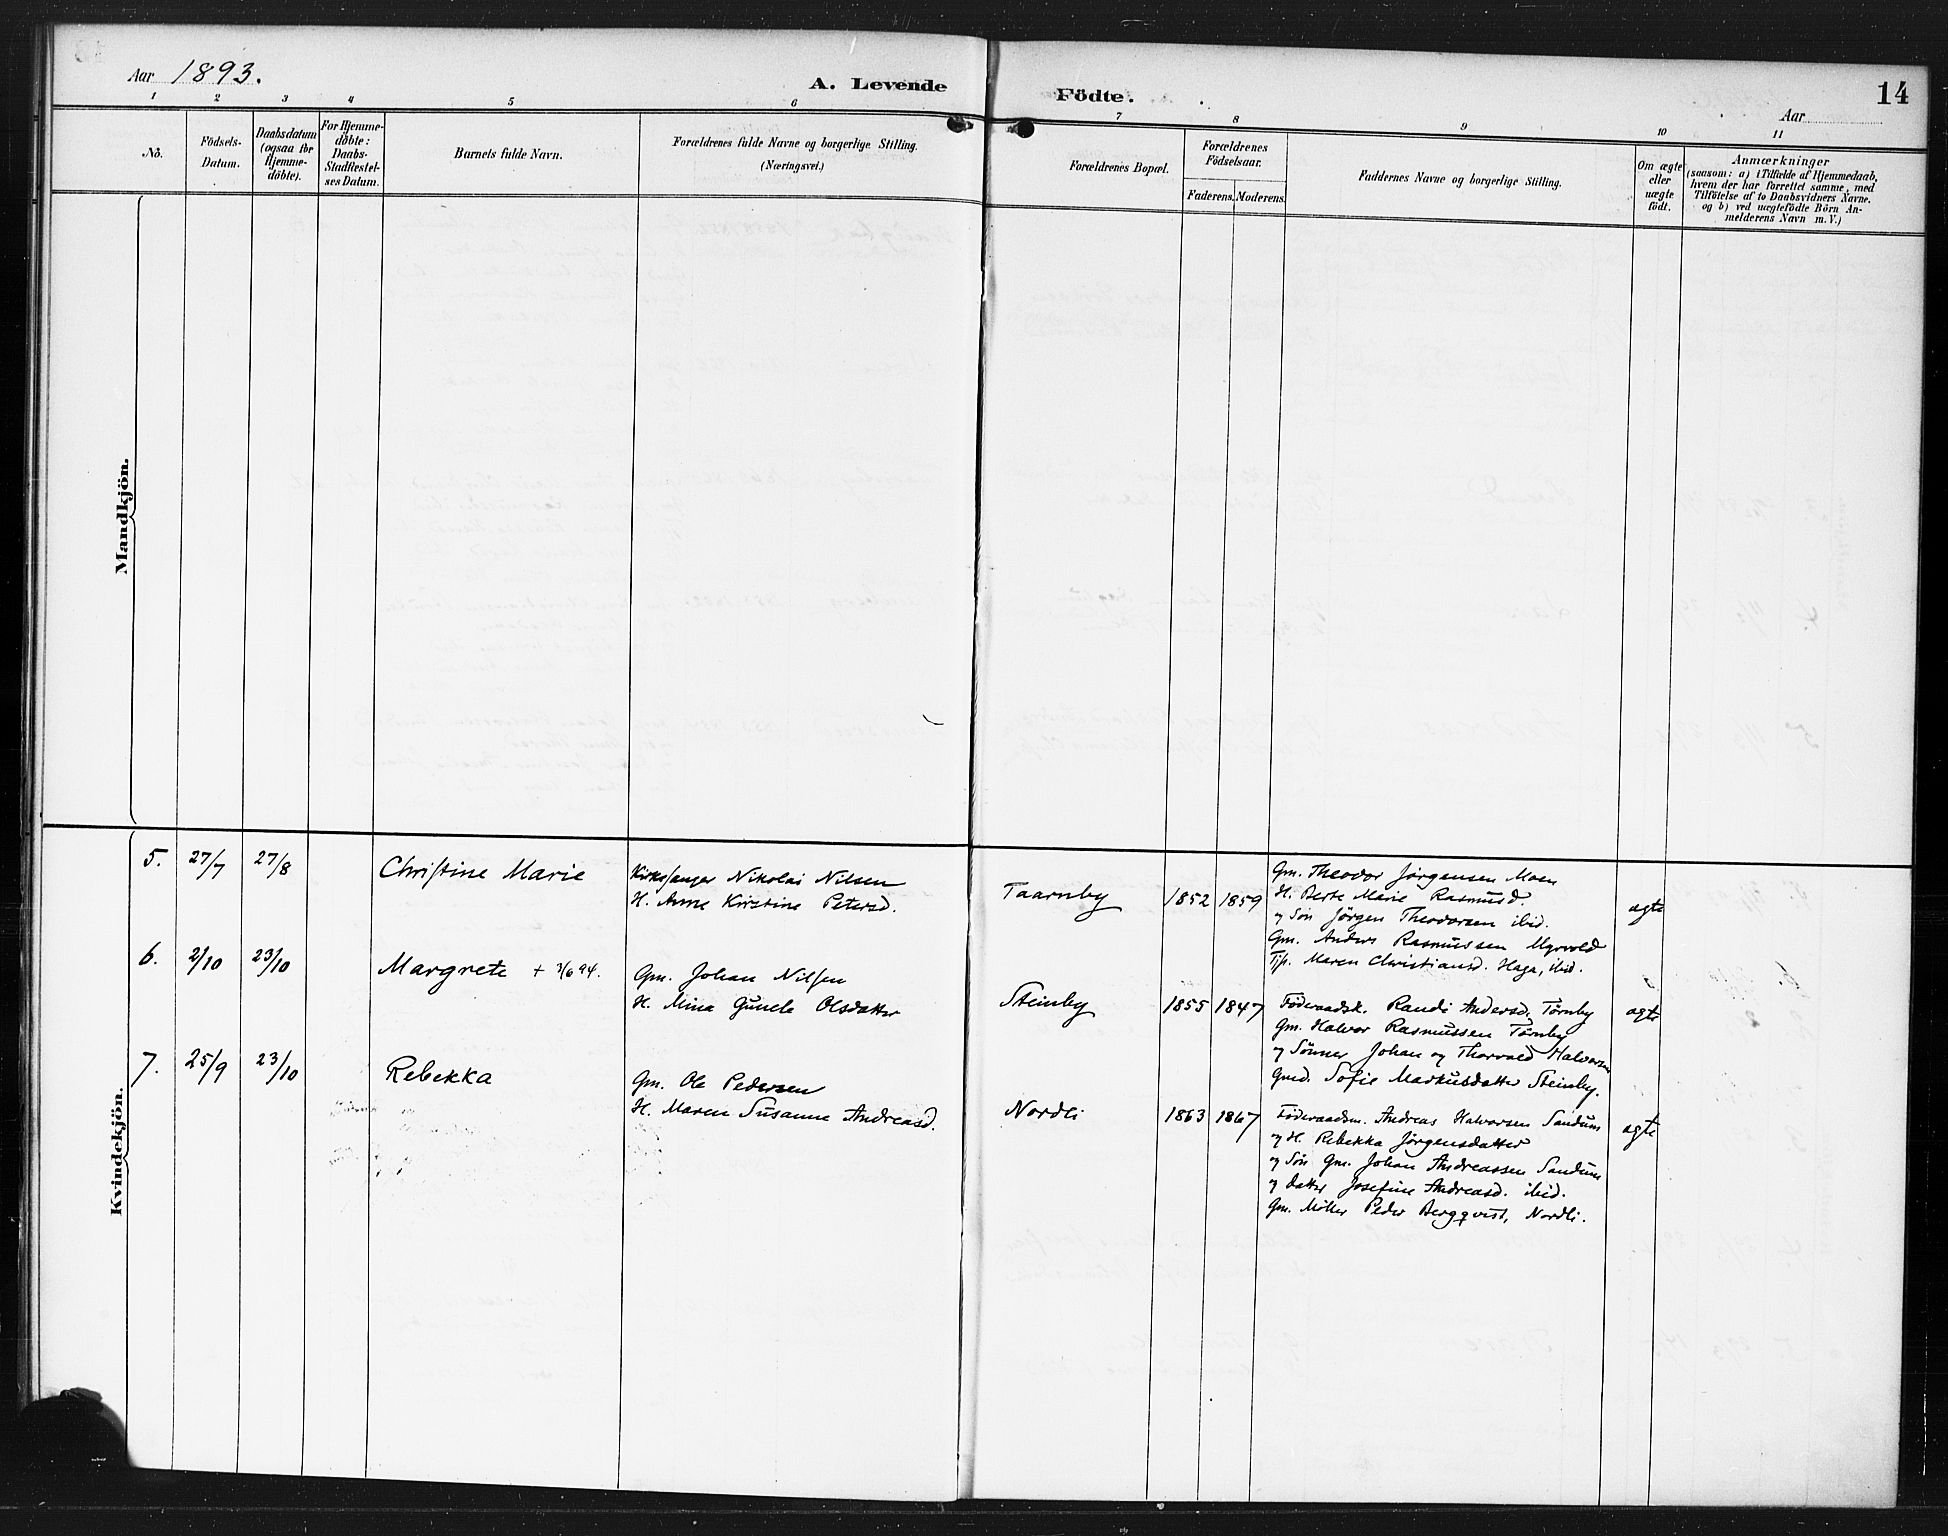 Aar 1893.
A. Levende Födte.
14
Aar
1 2 3 4 5 6 7 8 9 10 11
No.
Födsels-
Datum.
Daabsdatum
(ogsaa for
Hjemme-
döbte).
For Hjemme-
döbte:
Daabs-
Stadfestel-
ses Datum.
Barnets fulde Navn.
Forældrenes fulde Navne og borgerlige Stilling.
(Næringsvei.)
Forældrenes Bopæl.
Forældrenes
Födselsaar.
Faderens. Moderens.
Faddernes Navne og borgerlige Stilling.
Om ægte
eller
uægte
födt.
Anmærkninger
(saasom: a) i Tilfælde af Hjemmedaab,
hvem der har forrettet samme, med
Tilföielse af to Daabsvidners Navne.
og b) ved uægtefödte Börn An-
melderens Navn m. V.)
Mandkjön.
Kvindekjön.
5. 27/7 27/8 Christine Marie
Kirkesanger Nikolai Nilsen
H. Anne Kirstine Petersd.
Taarnby 1852 1859
Gm. Theodor Jørgensen Moen
H. Berte Marie Rasmusd.
og Søn Jørgen Theodorsen ibid.
Gm. Anders Rasmussen Myrvold
Tjp. Maren Christiansd. Haga, ibid.
ægte
6. 2/10 23/10 Margrete + 3/6 94.
Gm. Johan Nilsen
H. Mina Gunela Olsdatter
Steinby 1855 1847
Føderaadsk. Randi Andersd. Tørnby
Gm. Halvor Rasmussen Tørnby
og Sønner Johan og Thorvald Halvorsen
Gmd. Sofie Markusdatter Steinby.
ægte
7. 25/9 23/10 Rebekka
Gm. Ole Pedersen
H. Maren Susanne Andreasd.
Nordli 1863 1867
Føderaadsm. Andreas Halvorsen Sandum
og H. Rebekka Jørgensdatter
og Søn Gm. Johan Andreassen Sandum
og datter Josefine Andreasd. ibid.
Gm. Møller Peder Bergqvist, Nordli.
ægte